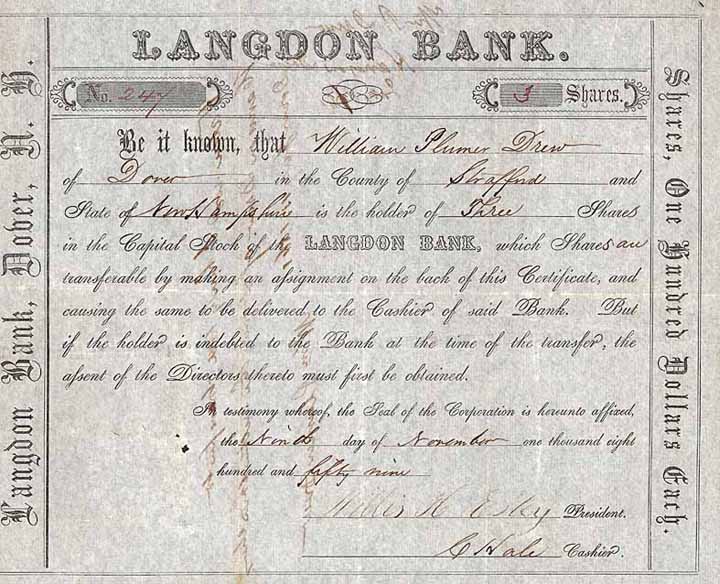 LANGDON BANK.
No. 247
3 Shares.
Be it known, that William Plumer Drew
of Dover in the County of Strafford and
State of New Hampshire is the holder of Three Shares
in the Capital Stock of the LANGDON BANK, which Shares are
transferable by making an assignment on the back of this Certificate, and
causing the same to be delivered to the Cashier of said Bank. But
if the holder is indebted to the Bank at the time of the transfer, the
assent of the Directors thereto must first be obtained.
In testimony whereof, the Seal of the Corporation is hereunto affixed,
the Ninth day of November one thousand eight
hundred and fifty nine
President.
C Hale Cashier.
Langdon Bank, Dover, N. H.
Shares, One Hundred Dollars Each.